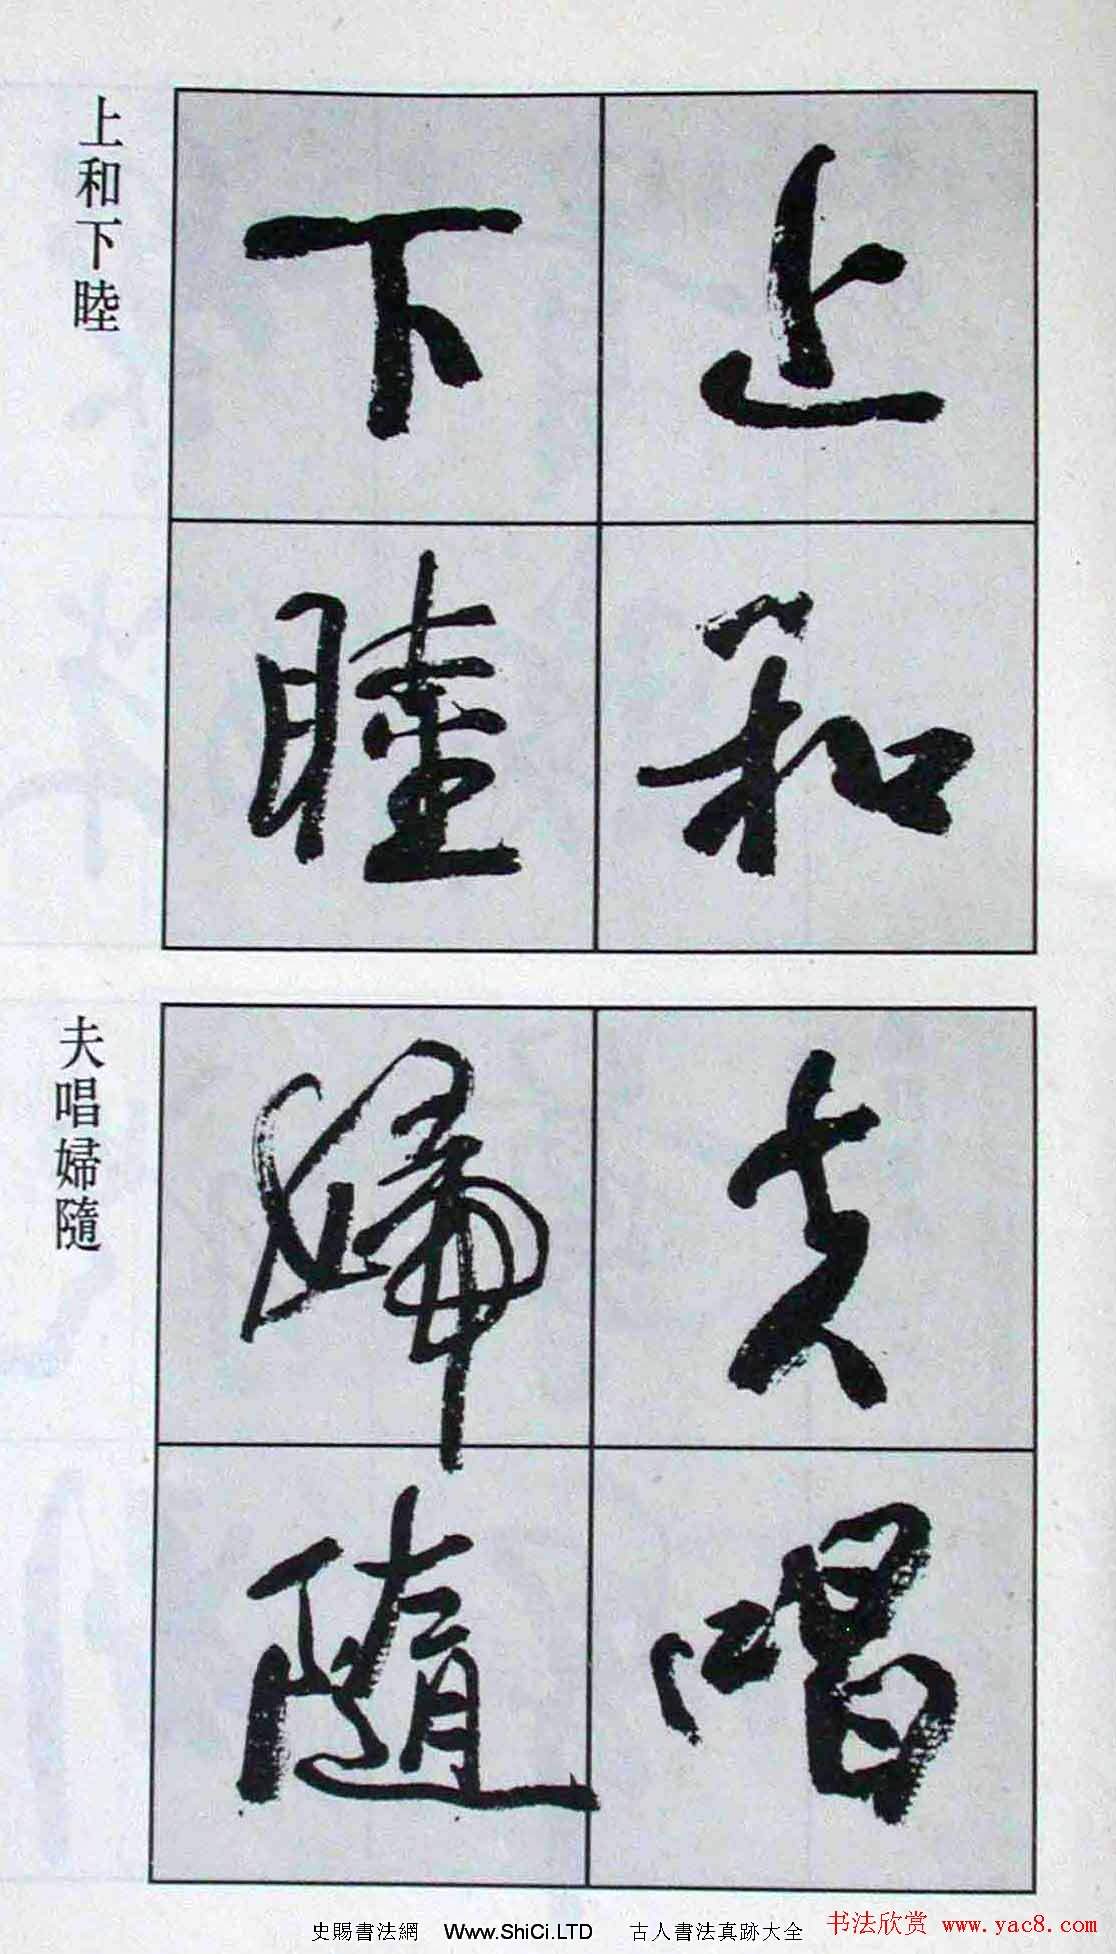 上和
下睦
上和下睦
夫唱
婦隨
夫唱婦隨
史賜書法網 Www.ShiCi.LTD 古人書法真跡大全
书法欣赏 www.yac8.com